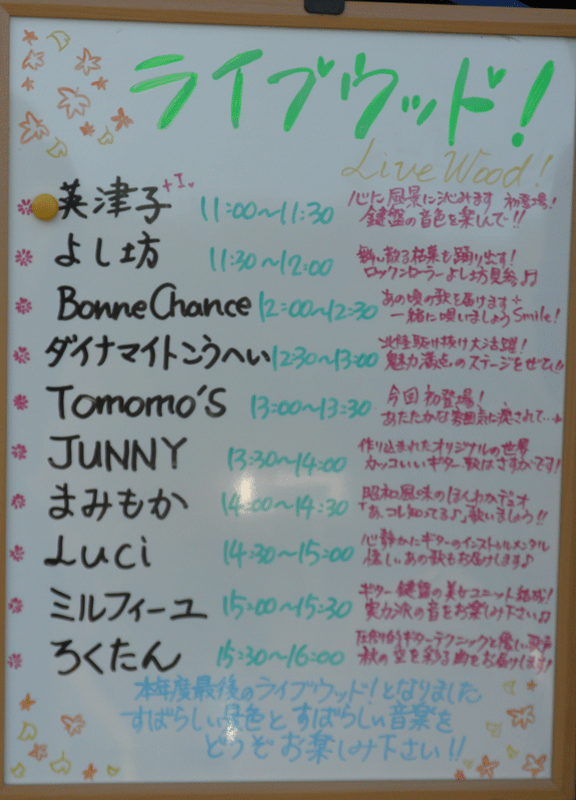 ライブウッド!
Live Wood!
英津子+I. 11:00〜11:30 心に風景に沁みます 初登場!
鍵盤の音色を楽しんで!!
よし坊 11:30〜12:00 舞い散る枯葉を踊り出す!
ロックンローラーよし坊見参♪
BonneChance 12:00〜12:30 あの頃の歌を届けます+
一緒に唄いましょうSmile!
ダイナマイトこうへい 12:30〜13:00 駆け抜け大活躍!
魅力満点のステージをぜひ!!
Tomomo'S 13:00〜13:30 今回初登場!
あたたかな雰囲気に癒されて…
JUNNY 13:30〜14:00 作り込まれたオリジナルの世界
カッコいいギター、歌はさすがです!
まみもか 14:00〜14:30 昭和風味のほんわかデュオ
「あ、コレ知ってる♪」歌いましょう!!
Luci 14:30〜15:00 心静かにギターのインストゥルメンタル
懐しいあの歌もお届けします♪
ミルフィーユ 15:00〜15:30 ギター 鍵盤の美女ユニット結成!
実力派の音をお楽しみ下さい♫
ろくたん 15:30〜16:00 圧倒的ギターテクニックと優しい歌声
秋の空を彩る曲をお届けします!
本年度最後のライブウッド!となりました
すばらしい景色と すばらしい音楽を
どうぞお楽しみ下さい!!